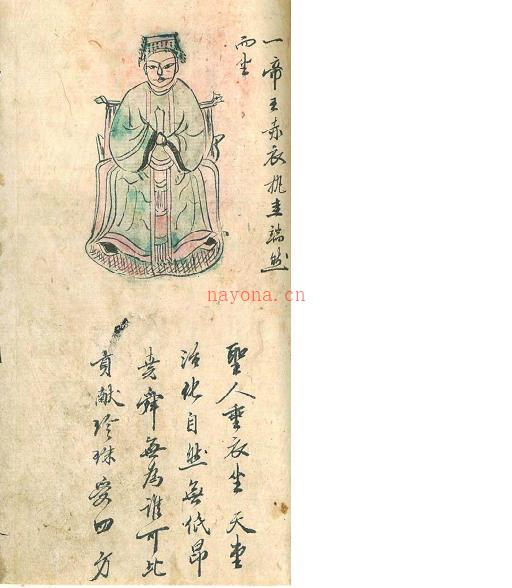 一帝王赤衣执圭端然
而坐
nayona.cn
聖人垂衣坐天堂
治化自然無低昂
堯舜無為誰可比
貢献珍珠安四方